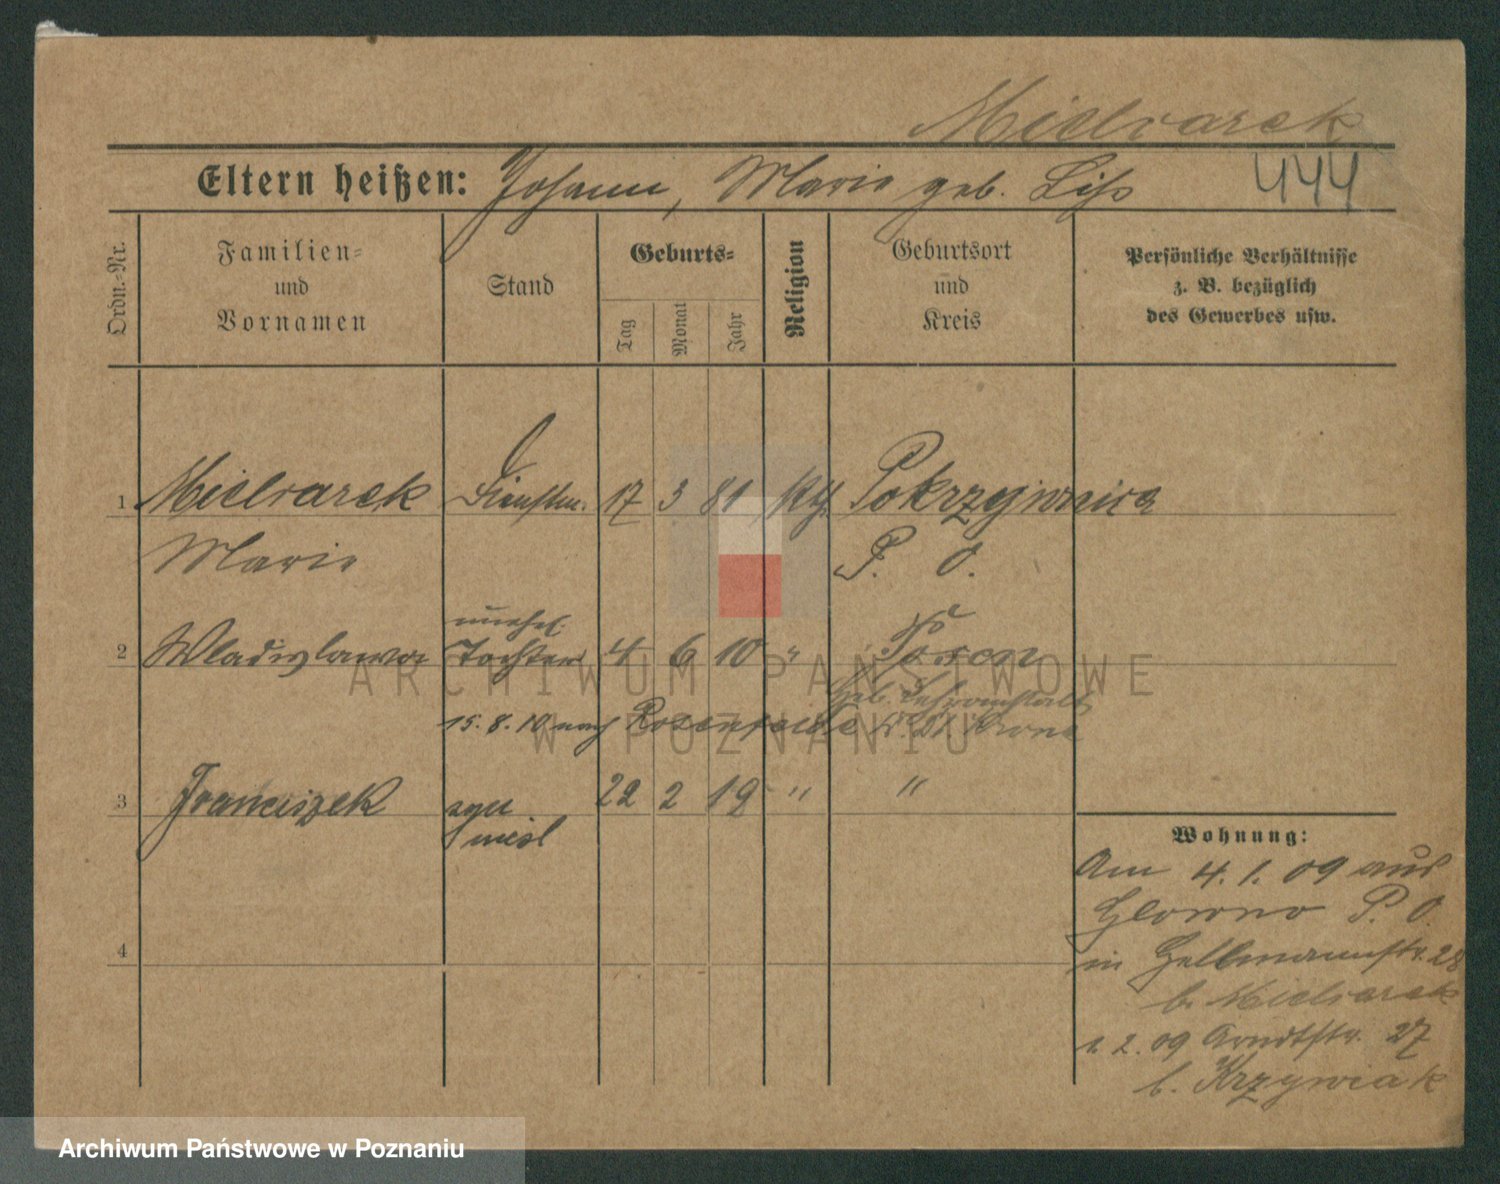 Mielcarek
Eltern heißen: Johann, Marie geb. Liss
444
Ordn.-Nr.
Familien-
und
Vornamen
Stand
Geburts-
Tag
Monat
Jahr
Religion
Geburtsort
und
Kreis
Persönliche Verhältnisse
z. B. bezüglich
des Gewerbes usw.
1 Mielcarek Dienstm. 17 3 81 kth. Pokrzywnica
Marie P. O.
unehel.
2 Wladislawa Tochter 4 6 10 " Posen
Geb. Lehranstalt
15.8.10 nach Rosenfelde Kr. Dt. Krone
3 Franciszek 22 2 12 " "
4
Wohnung:
Am 4.1.09 aus
Glowno P. O.
in Hellmannstr. 28
b. Mielcarek
2.09 Arndtstr. 27
b. Krzywiak
ARCHIWUM PAŃSTWOWE
W POZNANIU
Archiwum Państwowe w Poznaniu